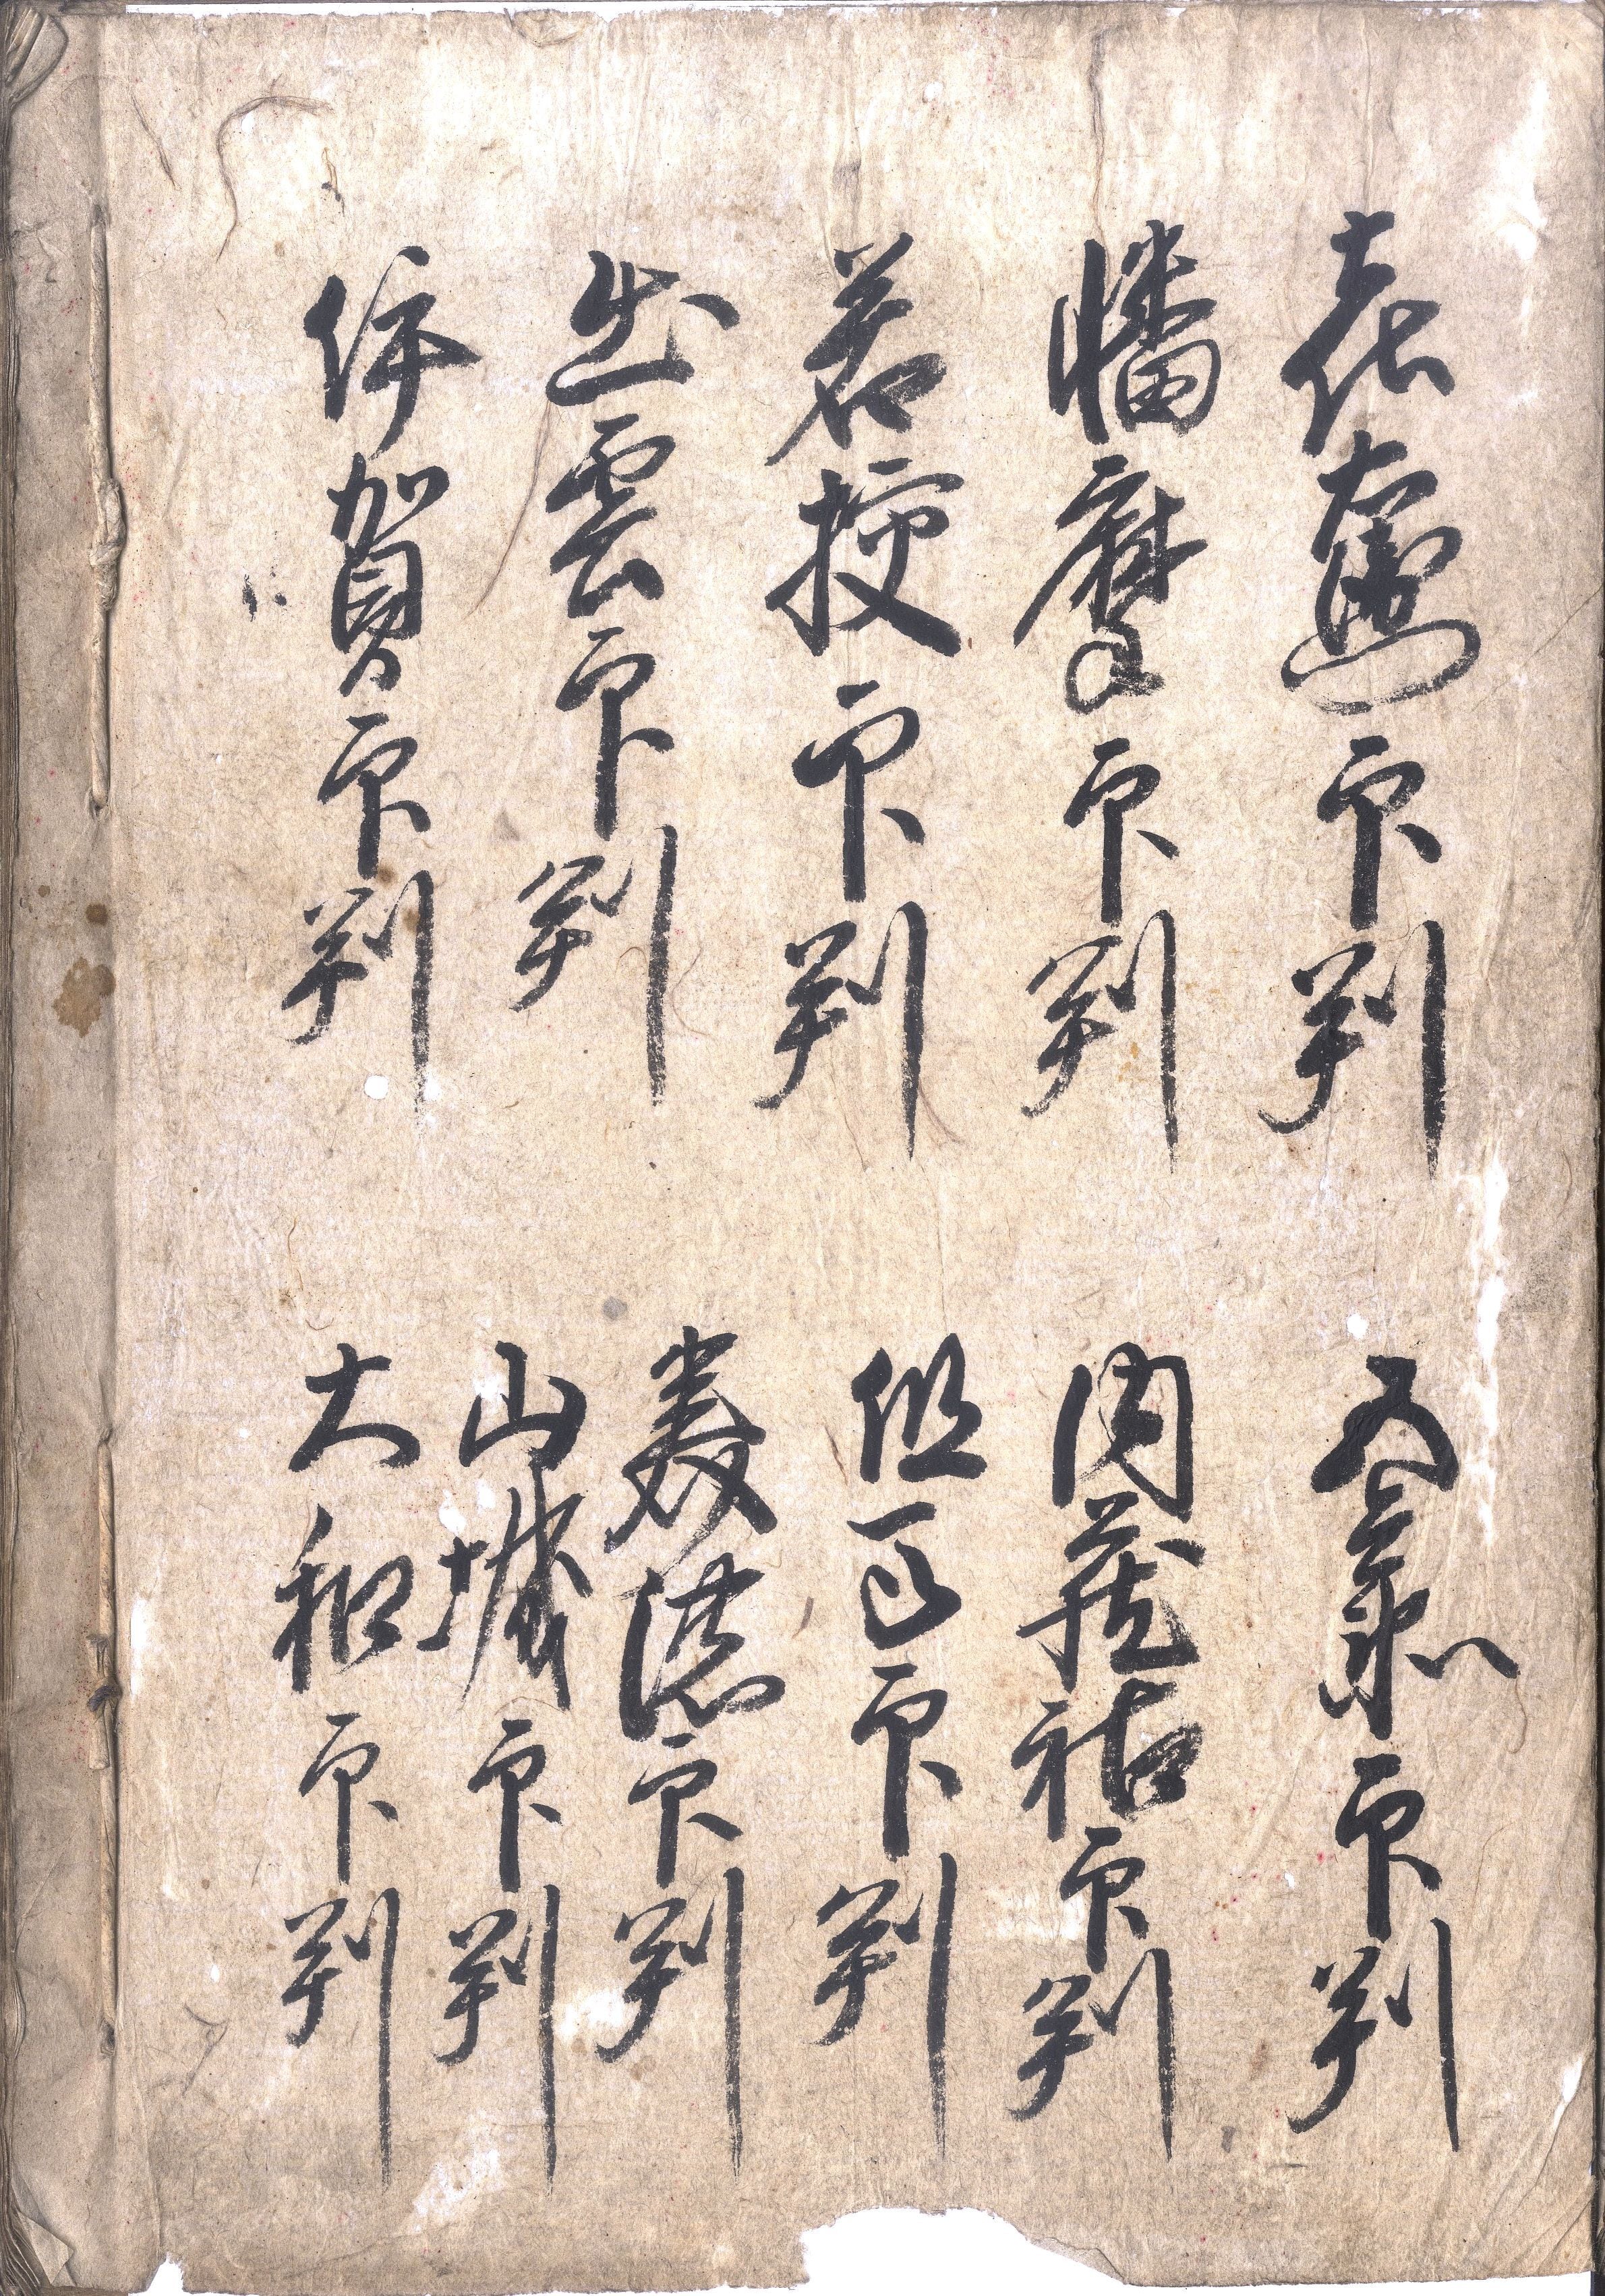 印判
幡摩印判
若狭印判
出雲印判
伊賀印判
印判
内蔵祐印判
但馬印判
美濃印判
山城印判
大和印判